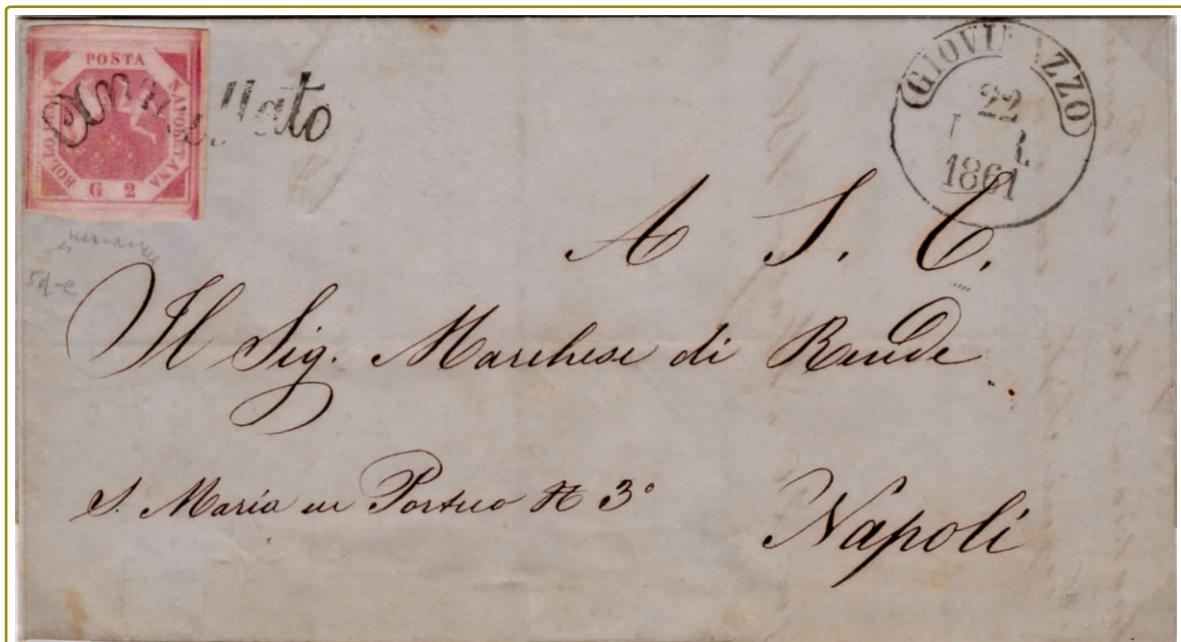 POSTA
NAPOLETANA
BOLLO
G 2
Annullato
GIOVINAZZO
22
1861
A S. E.
Il Sig. Marchese di Rende
S. Maria in Portico N 3°
Napoli
5d-e